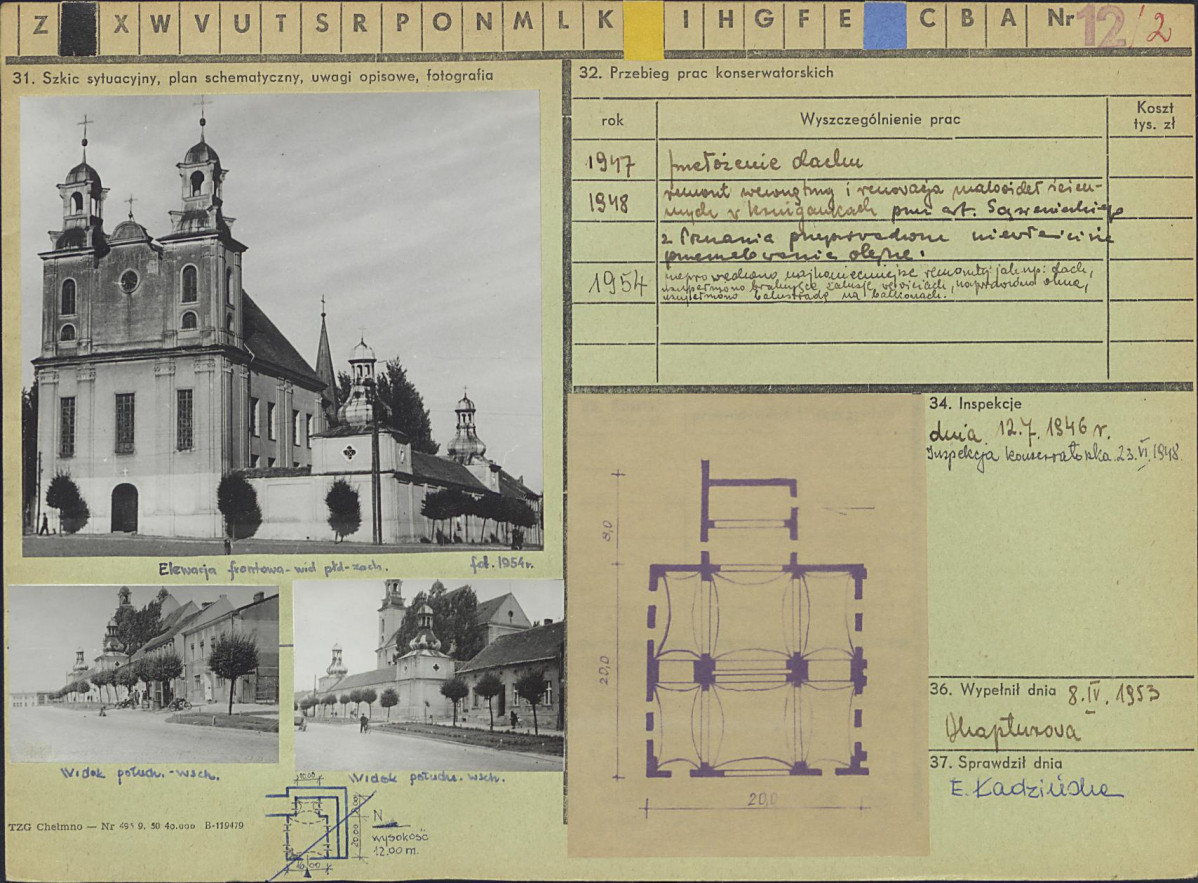 Z X W V U T S R P O N M L K I H G F E C B A Nr 12/2
31. Szkic sytuacyjny, plan schematyczny, uwagi opisowe, fotografia
Elewacja frontowa - wid płd-zach. fot. 1954 r.
Widok połudn. - wsch.
Widok połudn. wsch.
10,00
20,00
10,00
N
wysokość
12,00 m.
TZG Chełmno — Nr 495 9. 50 40.000 B-119479
32. Przebieg prac konserwatorskich
rok Wyszczególnienie prac Koszt
tys. zł
1947 przełożenie dachu
1948 remont wewnętrzny i renowacja malowideł ścien-
nych w krużgankach przez art.
z Poznania przeprowadzone niewłaściwie
przemalowanie olejne.
1954 najkonieczniejsze remonty jak np: dach,
uzupełniono brakujące żaluzje, naprawiono okna,
uzupełniono balustradę na balkonach.
8,0
20,0
20,0
34. Inspekcje
dnia 12.7.1946 r.
Inspekcja konserwatorska 23.VI.1948.
36. Wypełnił dnia 8.IV.1953
37. Sprawdził dnia
E. Kadzińska